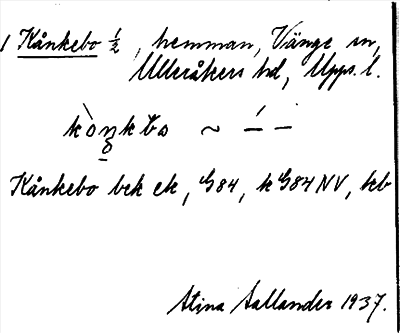 1 Kånkebo ½, hemman, Vänge sn,
Ulleråkers hd, Upps. l.
Kånkebo bek ek, G84, k G84 NV, kb
Stina Sallander 1937.